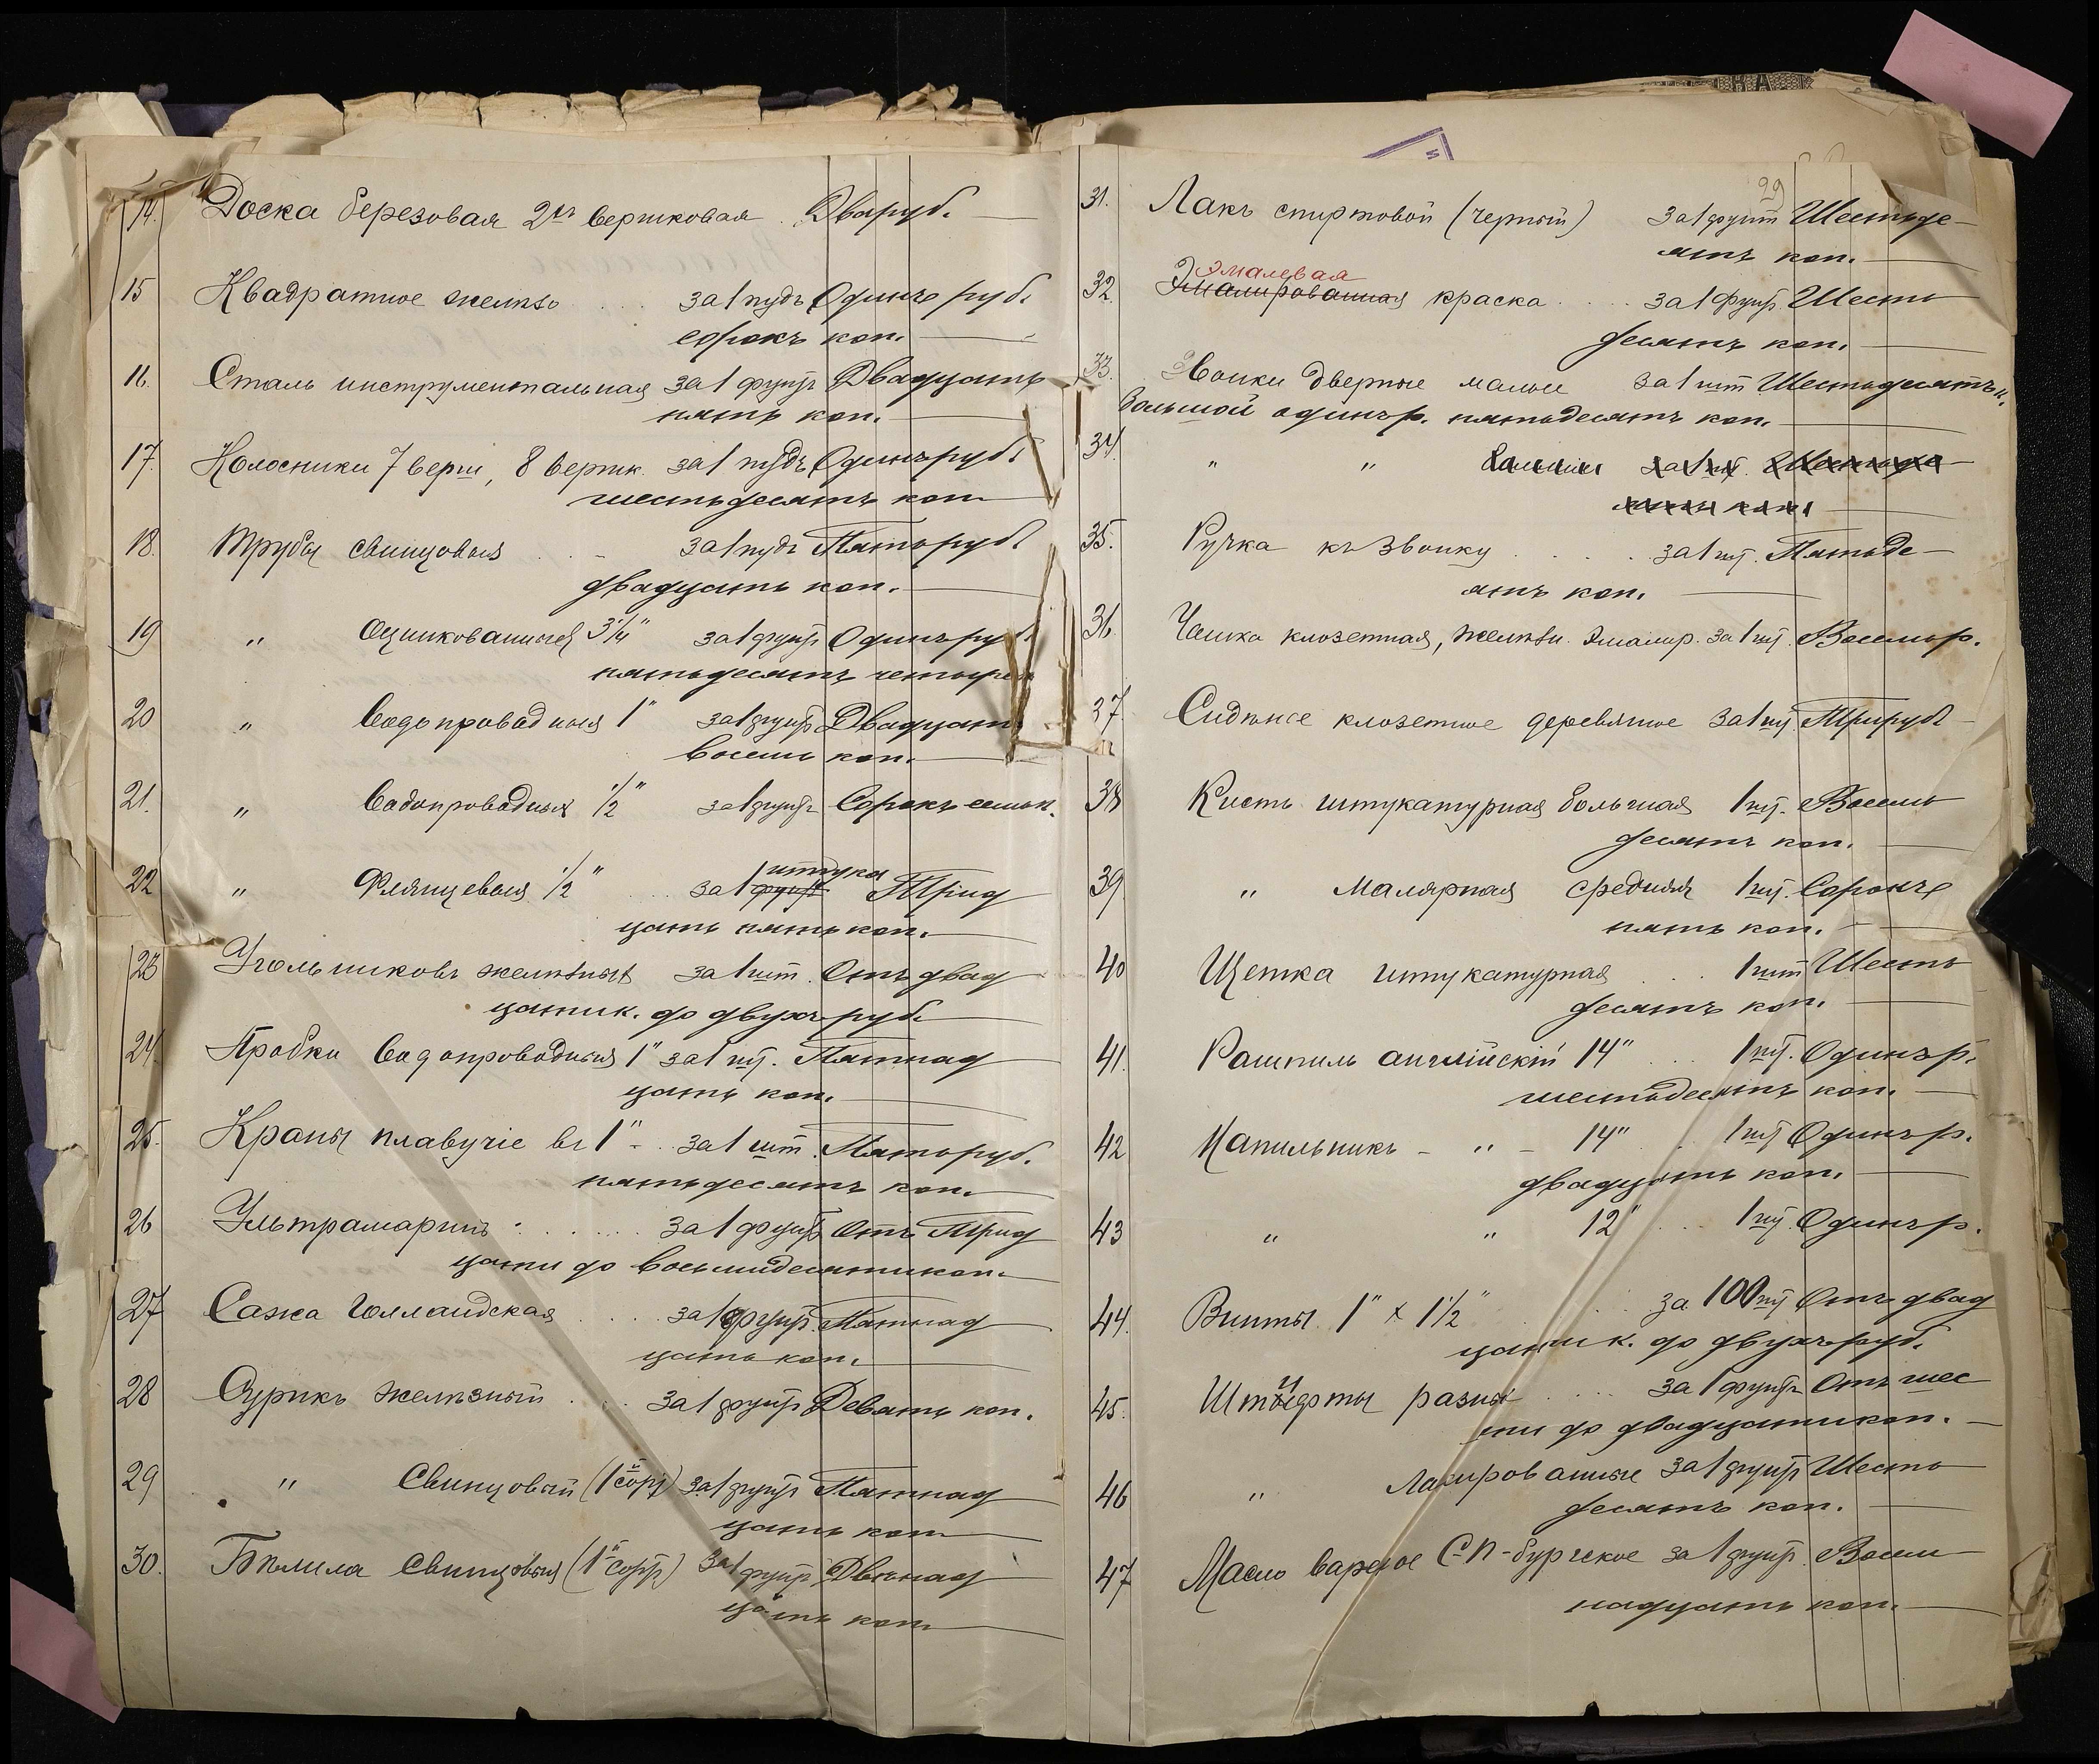 14. Доска березовая 2хъ вершковая. Два руб.
15 Квадратное железо за 1 пудъ Одинъ руб.
сорокъ коп.
16. Сталь инструментальная за 1 фунт. Двадцать
пять коп.
17. Колосники 7 верш, 8 вершк. за 1 пудъ Одинъ руб.
шестьдесятъ коп.
18. Трубы свинцовыя за 1 пудъ Пять руб.
двадцать коп.
19 " Оцинкованныя 3/4" за 1 фунт. Одинъ руб.
пятьдесятъ четыре
20 " Водопроводныя 1" за 1 фунт. Двадцать
восемь коп.
21. " Водопроводныя 1/2" за 1 фунт. Сорокъ семь к.
22 " Флянцевыя 1/2" за 1 фунт. штука Трид
цать пять коп.
23 Угольниковъ желѣзныхъ за 1 шт. Отъ двад
цати к. до двухъ руб.
24. Пробки водопроводныя 1" за 1 шт. Пятнад
цать коп.
25. Краны плавучіе въ 1" за 1 шт. Пять руб.
пятьдесятъ коп.
26 Ультрамаринъ за 1 фунт. Отъ Трид
цати до восьмидесяти коп.
27 Сажа Голландская за 1 фунт. Пятнад
цать коп.
28 Сурикъ желѣзный за 1 фунт. Девять коп.
29 " Свинцовый (1й сорт) за 1 фунт. Пятнад
цать коп.
30. Бѣлила Свинцовыя (1й сорт) за 1 фунт. Двѣнад
цать коп.
29
31. Лакъ спиртовой (черный) за 1 фунт Шестьде-
ятъ коп.
эмалевая
32. Эмалированная краска за 1 фунт. Шесть
десятъ коп.
33. Звонки дверные малые за 1 шт. Шестьдесятъ к.
большой одинъ р. пятьдесятъ коп.
34. " " большіе за 1 шт.
35. Ручка къ звонку за 1 шт. Пятьде-
ятъ коп.
36. Чашка клозетная, желѣзн. эмалир. за 1 шт. Восемь р.
37. Сидѣнье клозетное деревянное за 1 шт. Три руб.
38 Кисть штукатурная большая 1 шт. Восемь
десятъ коп.
39 " Малярная средняя 1 шт. Сорокъ
пять коп.
40 Щетка штукатурная 1 шт Шесть
десятъ коп.
41. Рашпиль англійскій 14" 1 шт. Одинъ р.
шестьдесятъ коп.
42 Напильникъ - " - 14" 1 шт Одинъ р.
двадцать коп.
43 " " 12" 1 шт. Одинъ р.
44. Винты 1" x 1 1/2" за 100 шт Отъ двад
цати к. до двухъ руб.
45. Штифты разные за 1 фунт. Отъ шес
ти до двадцати коп.
46 " Лакированные за 1 фунт. Шесть
десятъ коп.
47 Масло вареное С-П-бургское за 1 фунт. Восем
надцать коп.